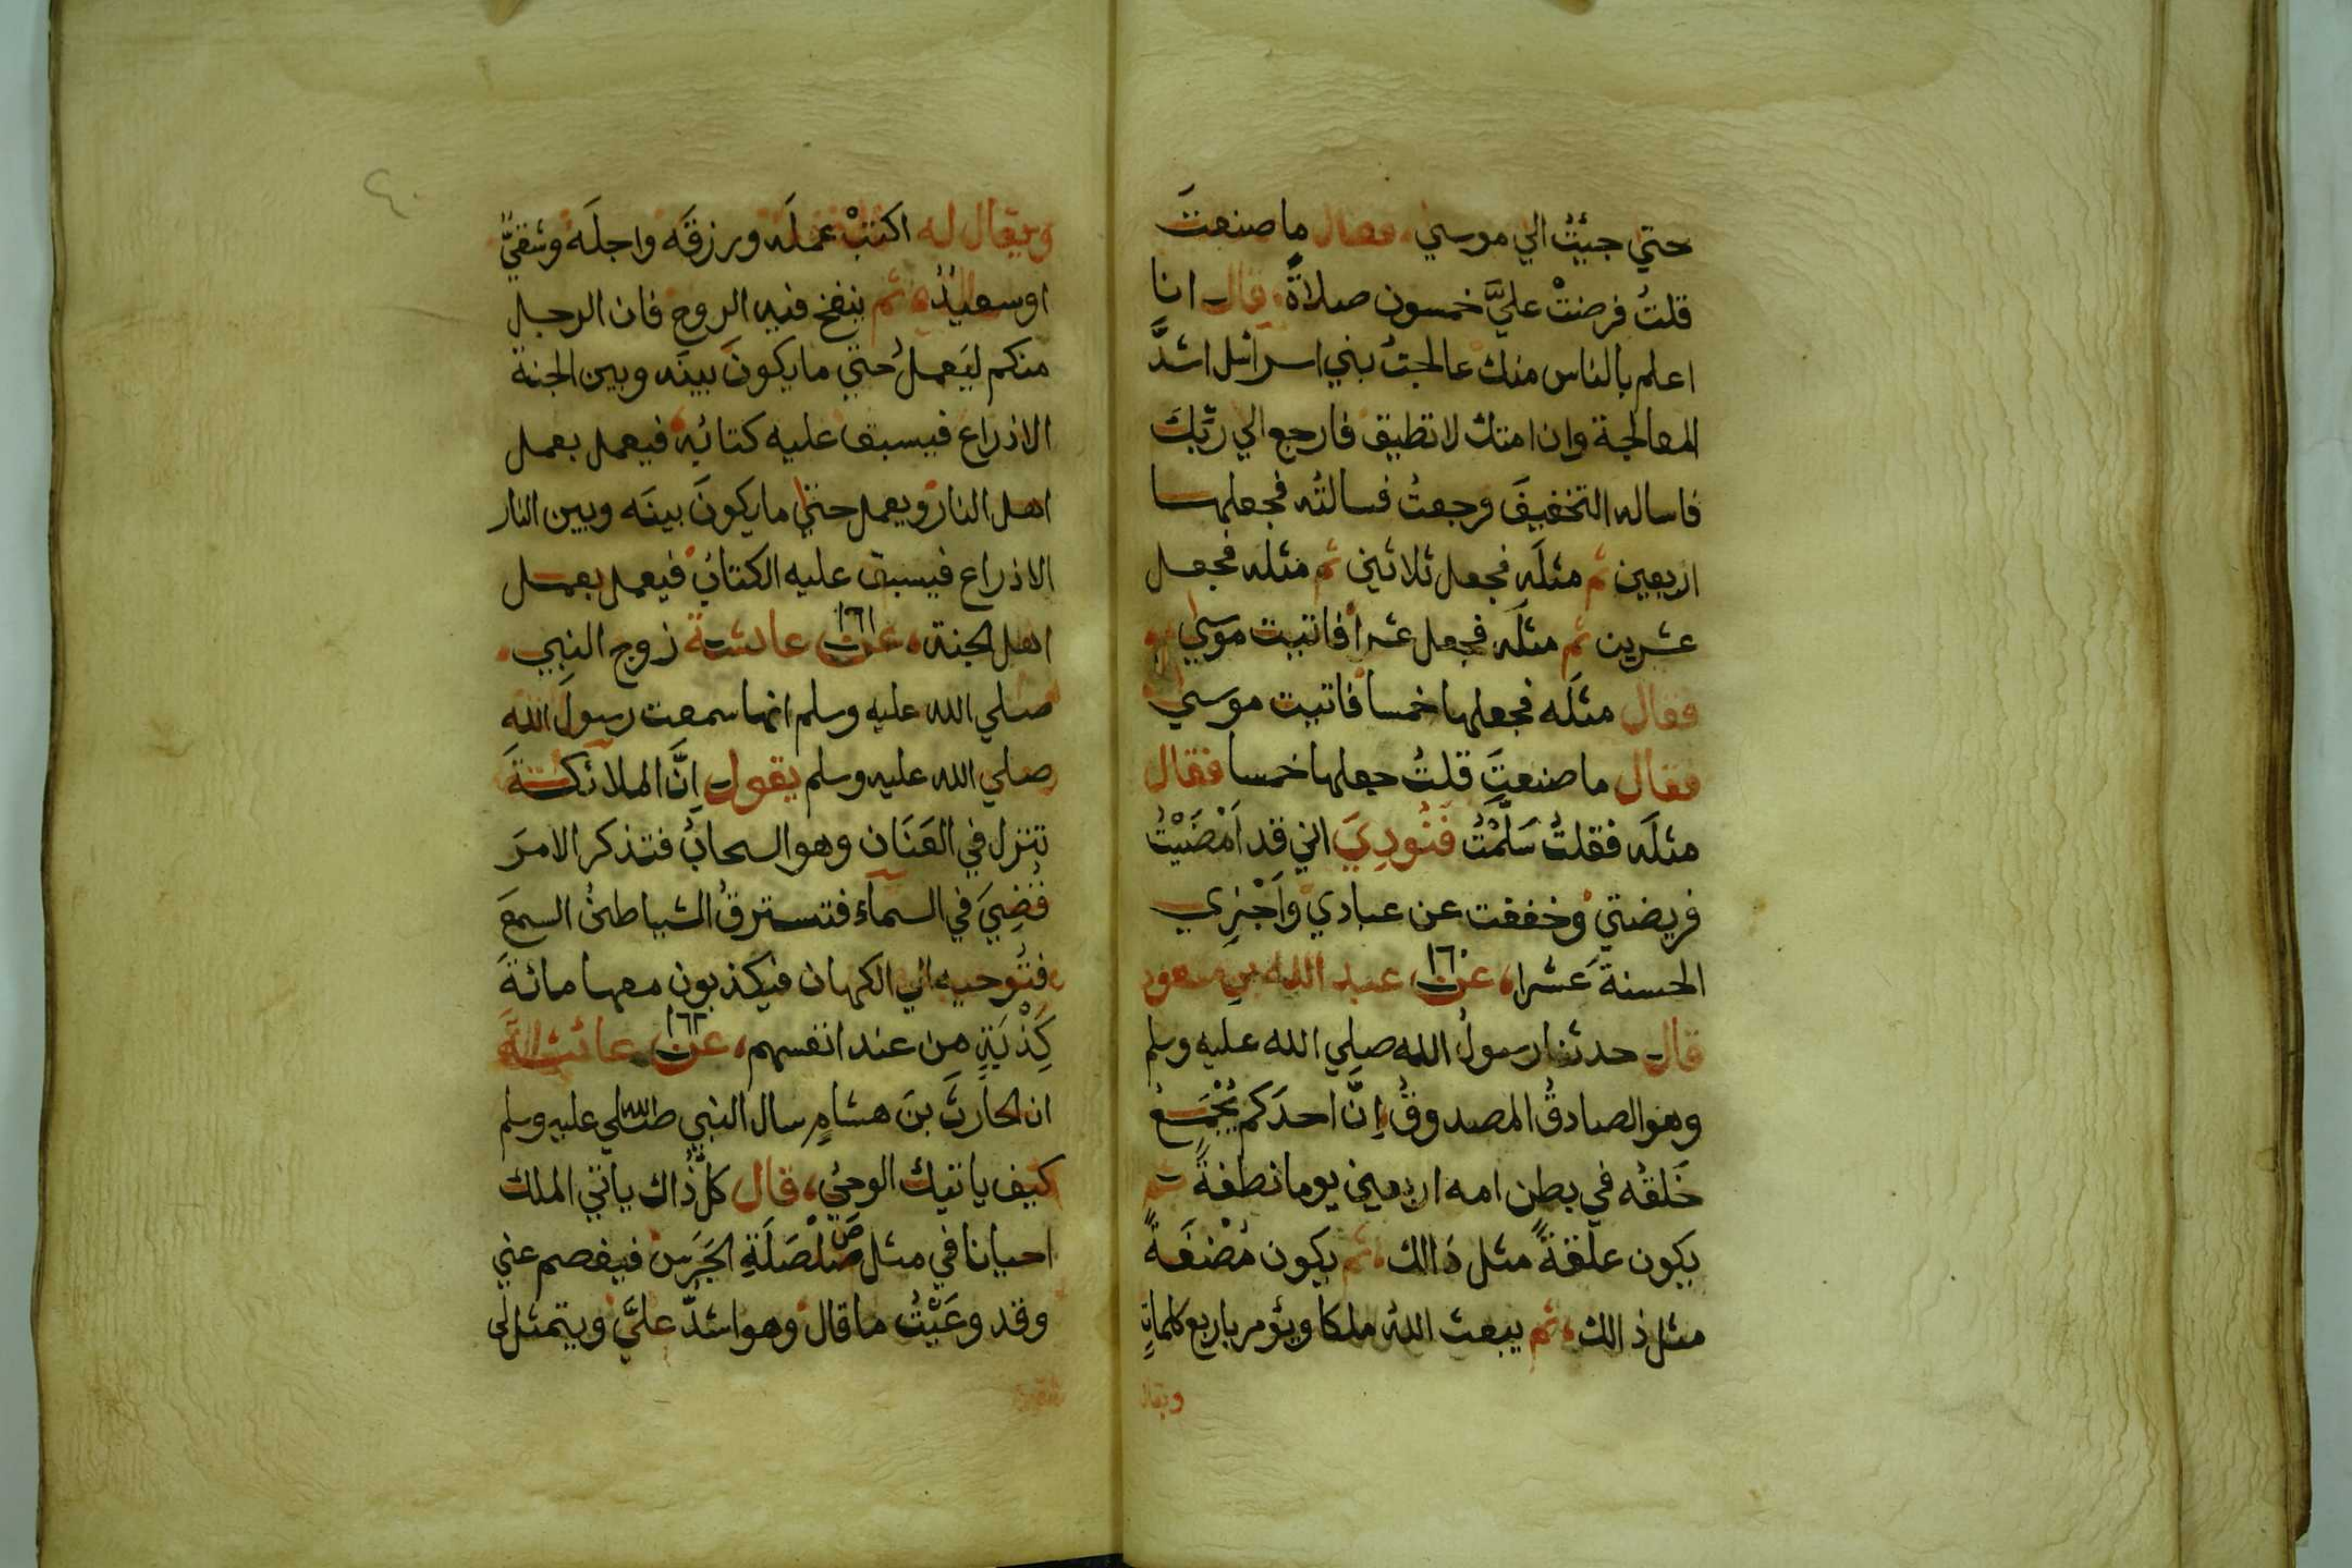 حتي جيئتُ الي موسي، فقال ما صنعتَ
قلتُ فرضتْ عليَّ خمسون صلاةً، قال انا
اعلم بالناس منك عالجتُ بني اسرائيل اشدَّ
المعالجة وان امتك لا تطيق فارجع الي ربّكَ
فاساله التخفيفَ فرجعتُ فسالتُه فجعلها
اربعين ثم مثلَه فجعل ثلاثين ثم مثله فجعل
عشرين ثم مثلَه فجعل عشرا فاتيت موسي
فقال مثلَه فجعلها خمسا فاتيت موسي
فقال ما صنعتَ قلتُ جعلها خمسا فقال
مثلَه فقلتُ سَلَّمْتُ فَنُودِيَ اني قد اَمْضَيْتُ
فريضتي وخففت عن عبادي وَاَجْزِي
الحسنةَ عَشرا، عن ١٦٠ عبد الله بنِ مسعود
قال حدثنا رسولُ الله صلي الله عليه وسلم
وهو الصادقُ المصدوقُ اِنَّ احدَكم يُجْمَعُ
خَلقُه في بطن امه اربعين يوما نطفةً ثم
يكون علقةً مثل ذالك، ثم يكون مُضْغَةً
مثل ذالك، ثم يبعث اللهُ ملكا ويؤمر باربع كلماتٍ
ويقال
ويقال له اكتبْ عملَه ورزقَه واجلَه وشقيٌّ
او سعيدٌ، ثم ينفخ فيه الروح فان الرجل
منكم ليَعملُ حتي ما يكونَ بينَه وبين الجنة
الا ذراع فيسبق عليه كتابُه فيعمل بعمل
اهل النار ويعمل حتي ما يكونَ بينَه وبين النار
الا ذراع فيسبق عليه الكتابُ فيعمل بعمل
اهل الجنة، عن ١٦١ عايشة زوج النبي
صلي الله عليه وسلم انها سمعت رسولَ الله
صلي الله عليه وسلم يقول اِنَّ الملائكةَ
تنزل في العَنَان وهو السحابُ فتذكر الامرَ
قُضِيَ في السمآء فتسترقُ الشياطينُ السمعَ
فتُوحيه الي الكهان فيكذبون معها مائةَ
كَِذْبَةٍ من عند انفسهم، عن ١٦٢ عائشةَ
ان الحارثَ بنَ هشامٍ سال النبي صلي الله عليه وسلم
كيف ياتيك الوحيُ، قال كلُّ ذاك ياتي الملك
احيانا في مثل صَلْصَلَةِ الجَرَس فيفصم عني
وقد وعَيْتُ ما قال وهو اشدُّ عليَّ ويتمثل لي